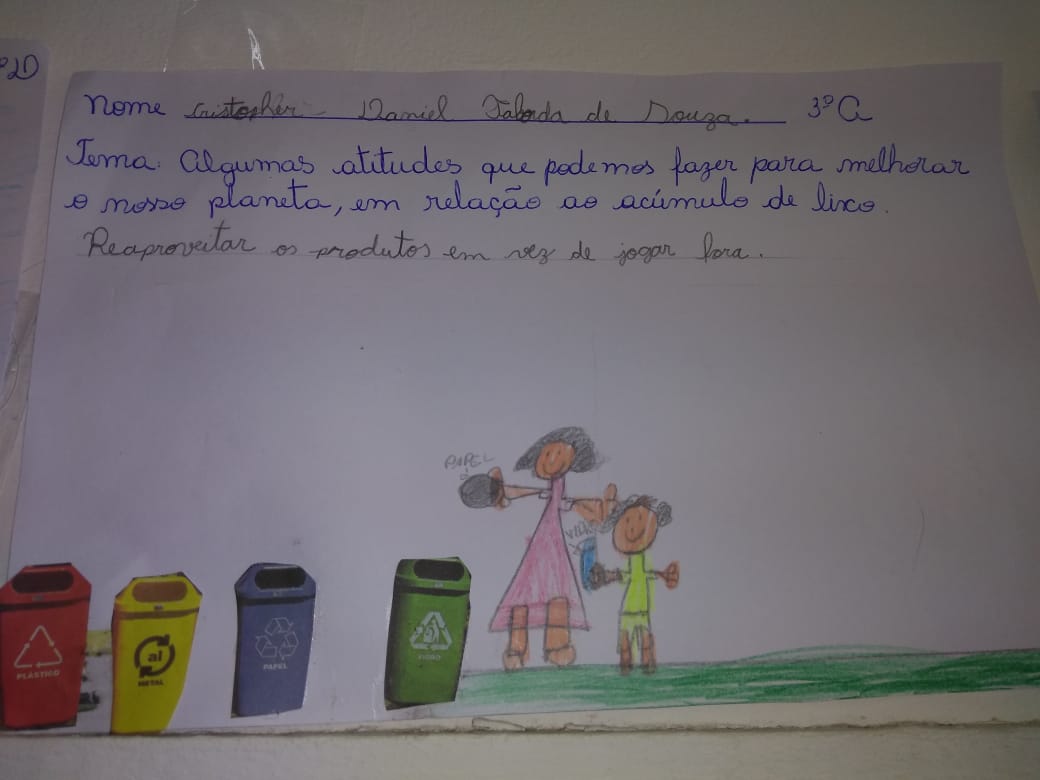 º D
Nome Cristopher Daniel Taborda de Souza. 3º A
Tema: Algumas atitudes que podemos fazer para melhorar
o nosso planeta, em relação ao acúmulo de lixo.
Reaproveitar os produtos em vez de jogar fora.
PAPEL
PLÁSTICO
al
METAL
PAPEL
VIDRO